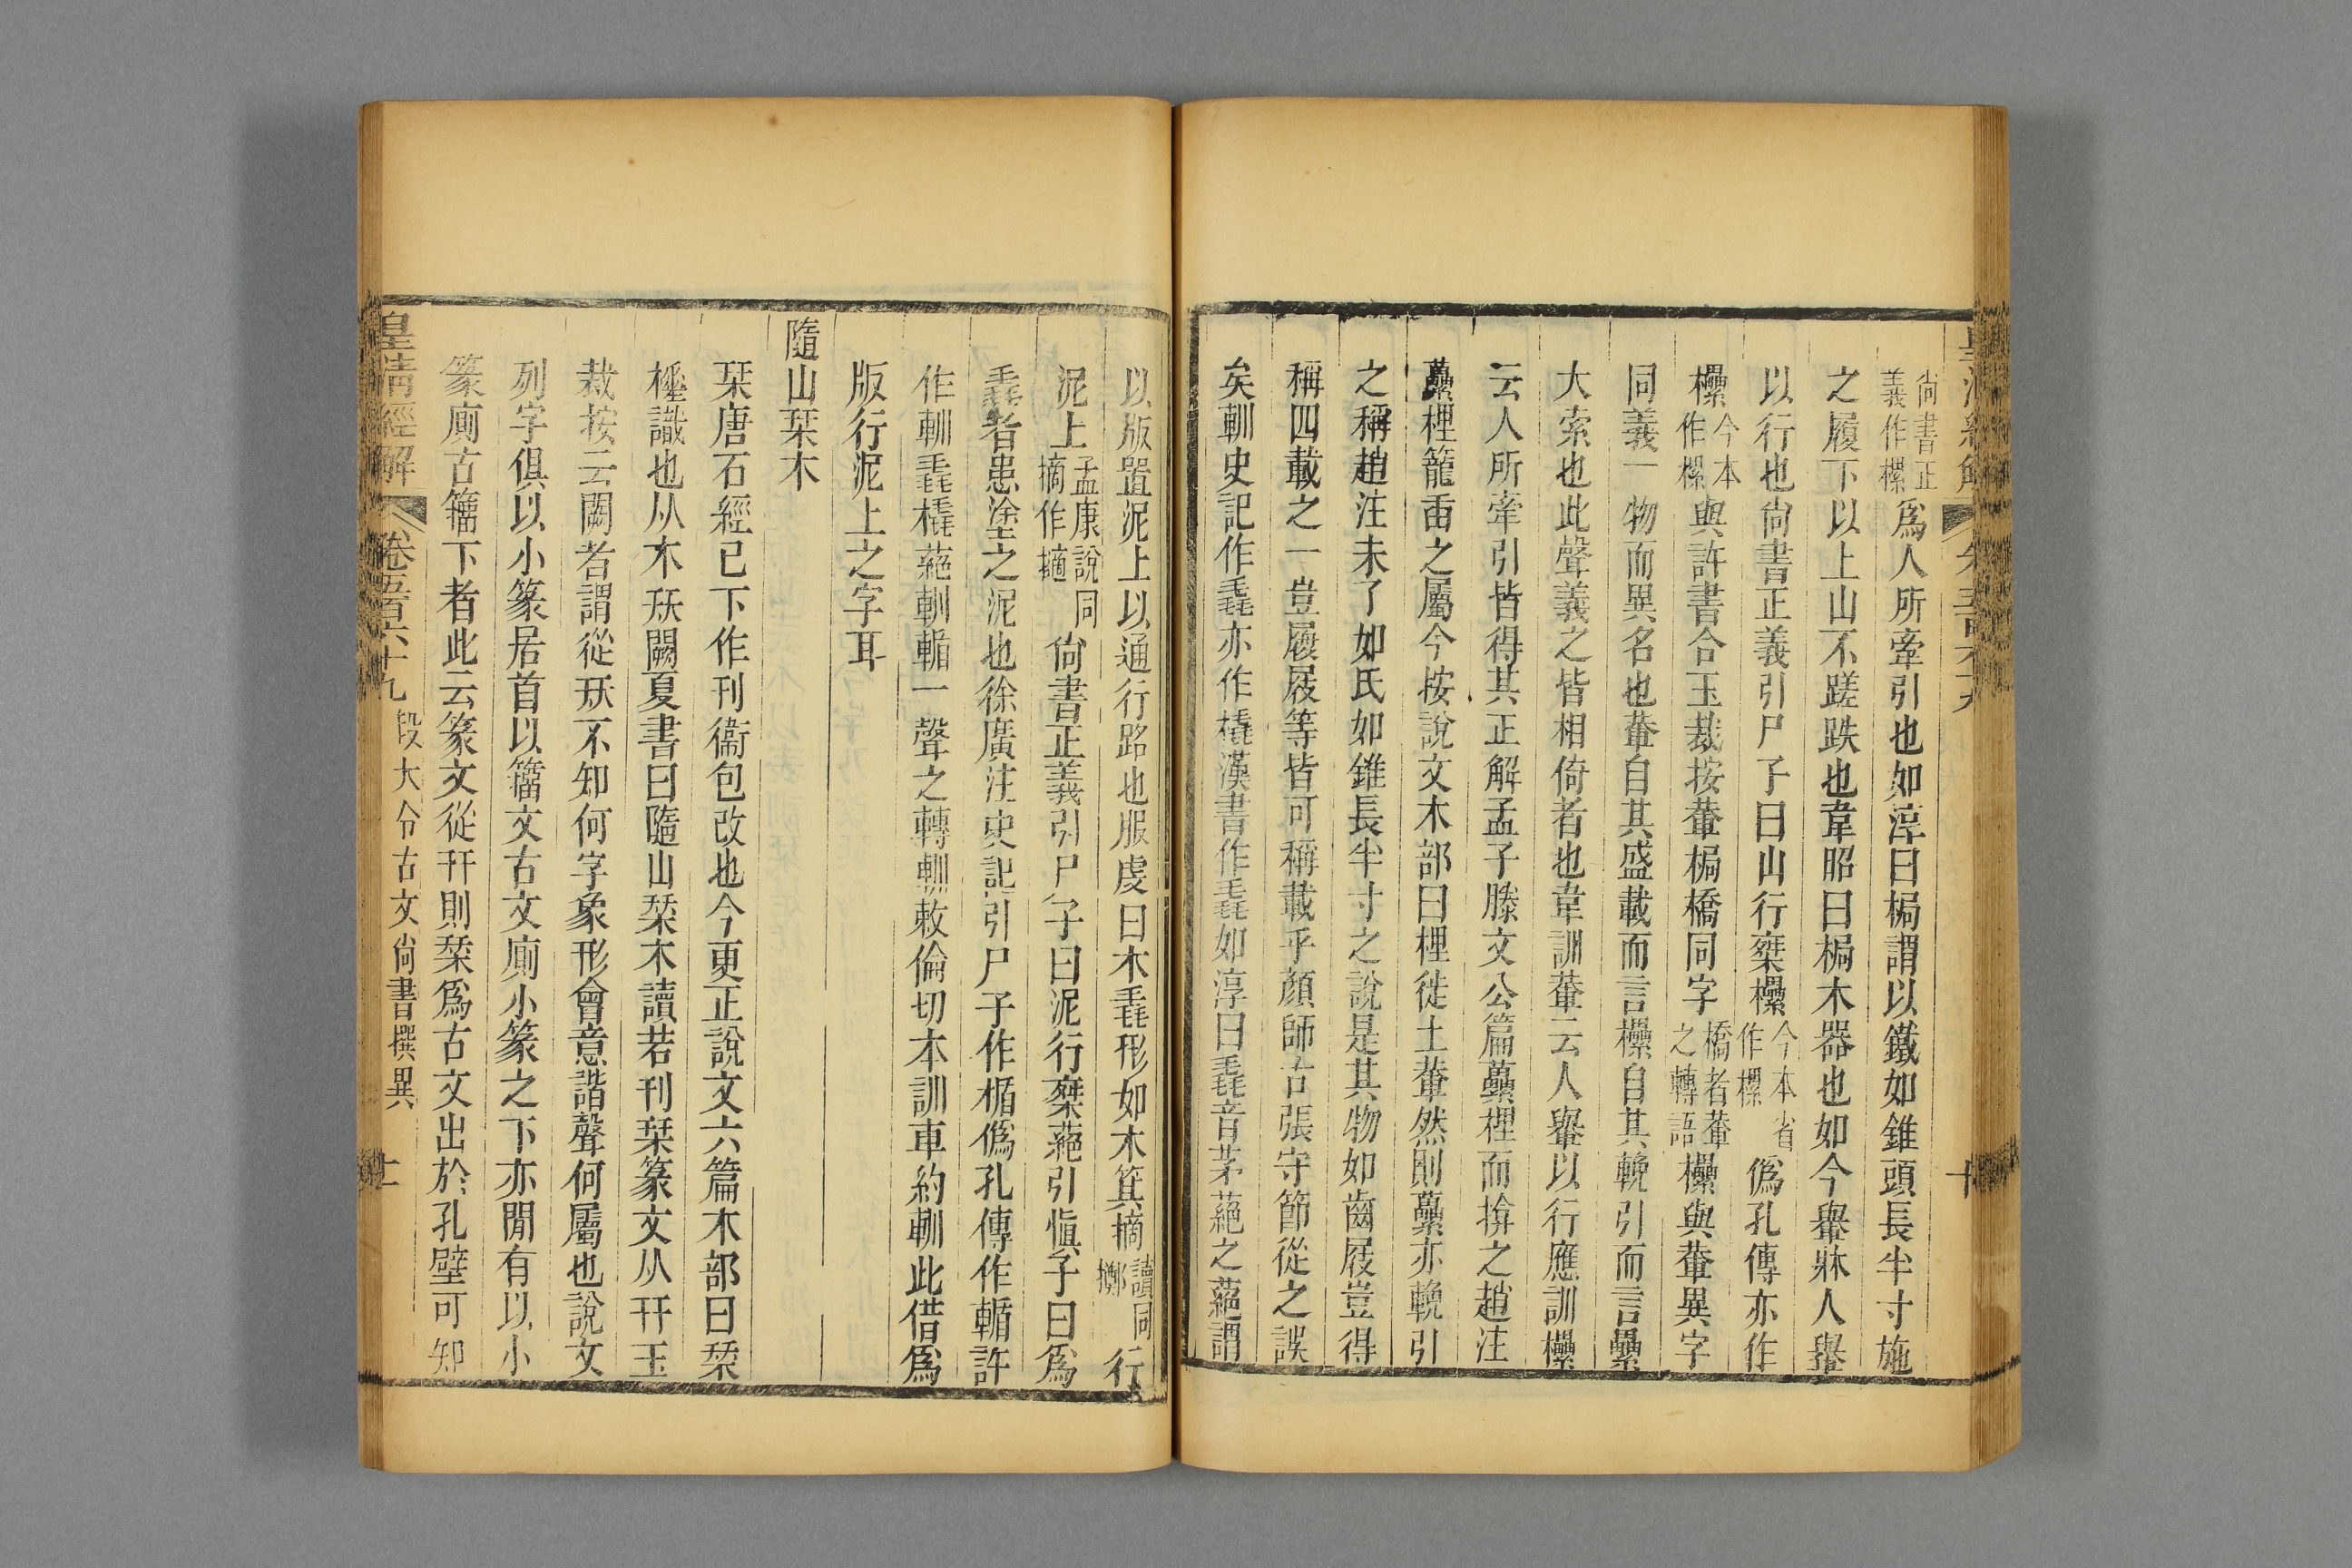 尙書正義作樏爲人所牽引也如淳曰梮謂以鐵如錐頭長半寸施
之履下以上山不蹉跌也韋昭曰梮木器也如今轝牀人轝
以行也尙書正義引尸子曰山行桀欙今本省作樏僞孔傳亦作
欙今本作樏與許書合玉裁按輂梮橋同字橋者輂之轉語欙與輂異字
同義一物而異名也輂自其盛載而言欙自其輓引而言纍
大索也此聲義之皆相倚者也韋訓輂云人轝以行應訓欙
云人所牽引皆得其正解孟子滕文公篇虆梩而揜之趙注
虆梩籠臿之屬今按說文木部曰梩徙土輂然則虆亦輓引
之稱趙注未了如氏如錐長半寸之說是其物如齒屐豈得
稱四載之一豈屐屐等皆可稱載乎顏師古張守節從之誤
矣輴史記作毳亦作橇漢書作毳如淳曰毳音茅蕝之蕝謂
以版置泥上以通行路也服虔曰木毳形如木箕摘讀同擲行
泥上孟康說同摘作擿尙書正義引尸子曰泥行桀蕝引愼子曰爲
毳者患塗之泥也徐廣注史記引尸子作楯僞孔傳作輴許
作軓毳橇蕝軓輴一聲之轉軓敕倫切本訓車約軓此借爲
版行泥上之字耳
隨山栞木
栞唐石經已下作刊衞包改也今更正說文六篇木部曰栞
槎識也从木㺶闕夏書曰隨山栞木讀若刊栞篆文从幵玉
裁按云闕者謂從㺶不知何字象形會意諧聲何屬也說文
列字俱以小篆居首以籒文古文廁小篆之下亦閒有以小
篆廁古籒下者此云篆文從幵則栞爲古文出於孔壁可知
皇淸經解 卷五百六十九 段大令古文尙書撰異 十一